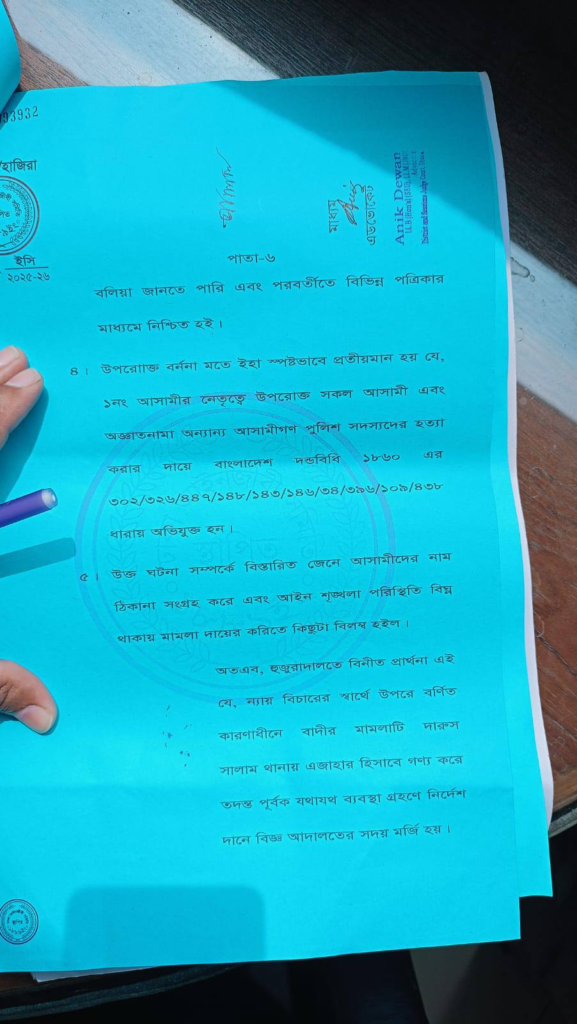 93932
হাজিরা
ইসি
২০২৫-২৬
মাধ্যম
এডভোকেট
Anik Dewan
পাতা-৬
বলিয়া জানতে পারি এবং পরবর্তীতে বিভিন্ন পত্রিকার
মাধ্যমে নিশ্চিত হই।
৪। উপরোক্তি বর্ননা মতে ইহা স্পষ্টভাবে প্রতীয়মান হয় যে,
১নং আসামীর নেতৃত্বে উপরোক্ত সকল আসামী এবং
অজ্ঞাতনামা অন্যান্য আসামীগণ পুলিশ সদস্যদের হত্যা
করার দায়ে বাংলাদেশ দন্ডবিধি ১৮৬০ এর
৩০২/৩২৬/৪৪৭/১৪৮/১৪৩/১৪৬/৩৪/৩৯৬/১০৯/৪৩৮
ধারায় অভিযুক্ত হন।
৫। উক্ত ঘটনা সম্পর্কে বিস্তারিত জেনে আসামীদের নাম
ঠিকানা সংগ্রহ করে এবং আইন শৃঙ্খলা পরিস্থিতি বিঘ্ন
থাকায় মামলা দায়ের করিতে কিছুটা বিলম্ব হইল।
অতএব, হুজুরাদালতে বিনীত প্রার্থনা এই
যে, ন্যায় বিচারের স্বার্থে উপরে বর্ণিত
কারণাধীনে বাদীর মামলাটি দারুস
সালাম থানায় এজাহার হিসাবে গণ্য করে
তদন্ত পূর্বক যথাযথ ব্যবস্থা গ্রহণে নির্দেশ
দানে বিজ্ঞ আদালতের সদয় মর্জি হয়।